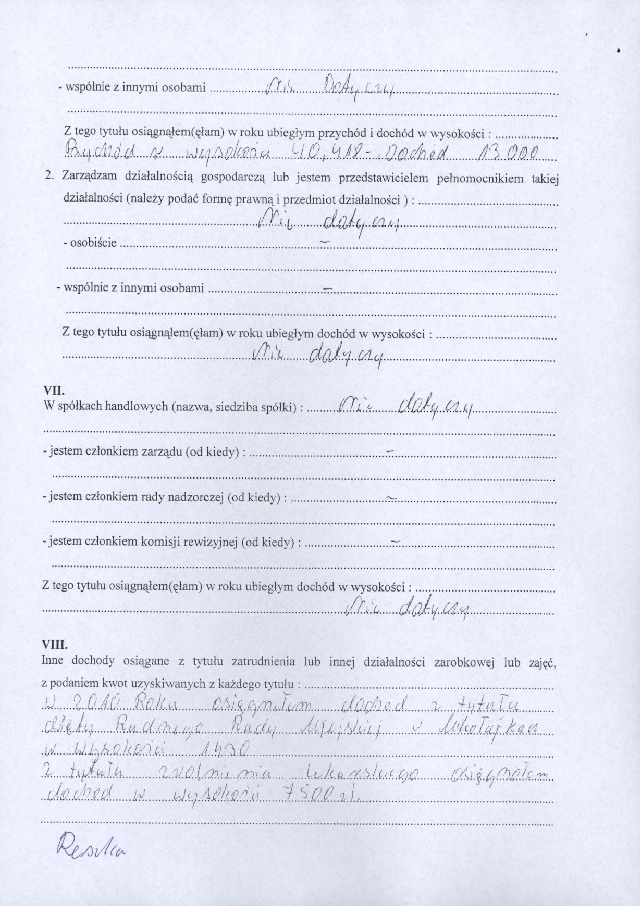 - wspólnie z innymi osobami Nie Dotyczy
Z tego tytułu osiągnąłem(ęłam) w roku ubiegłym przychód i dochód w wysokości :
Przychód w wysokości 40,418- Dochód 13 000
2. Zarządzam działalnością gospodarczą lub jestem przedstawicielem pełnomocnikiem takiej
działalności (należy podać formę prawną i przedmiot działalności ) :
Nie dotyczy
- osobiście –
- wspólnie z innymi osobami –
Z tego tytułu osiągnąłem(ęłam) w roku ubiegłym dochód w wysokości :
Nie dotyczy
VII.
W spółkach handlowych (nazwa, siedziba spółki) : Nie dotyczy
- jestem członkiem zarządu (od kiedy) : –
- jestem członkiem rady nadzorczej (od kiedy) : –
- jestem członkiem komisji rewizyjnej (od kiedy) : –
Z tego tytułu osiągnąłem(ęłam) w roku ubiegłym dochód w wysokości :
Nie dotyczy
VIII.
Inne dochody osiągane z tytułu zatrudnienia lub innej działalności zarobkowej lub zajęć,
z podaniem kwot uzyskiwanych z każdego tytułu :
W 2010 Roku osiągnąłem dochód z tytułu
diety Radnego Rady Miejskiej w
w wysokości 1430
Z tytułu zwolnienia lekarskiego osiągnąłem
dochód w wysokości 7500 zł.
Reszka